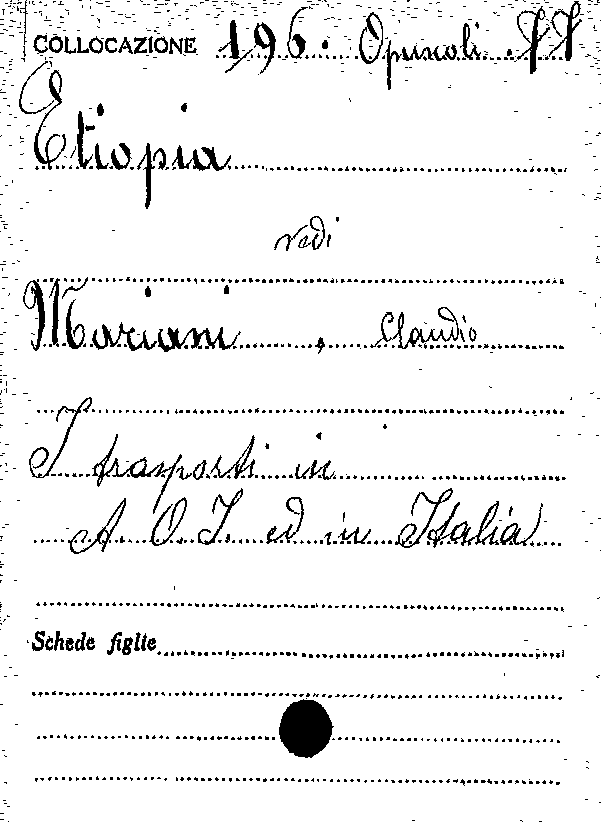 COLLOCAZIONE 196. Opuscoli
Etiopia
vedi
Mariani, Claudio
I trasporti in
A. O. I. ed in Italia
Schede figlie